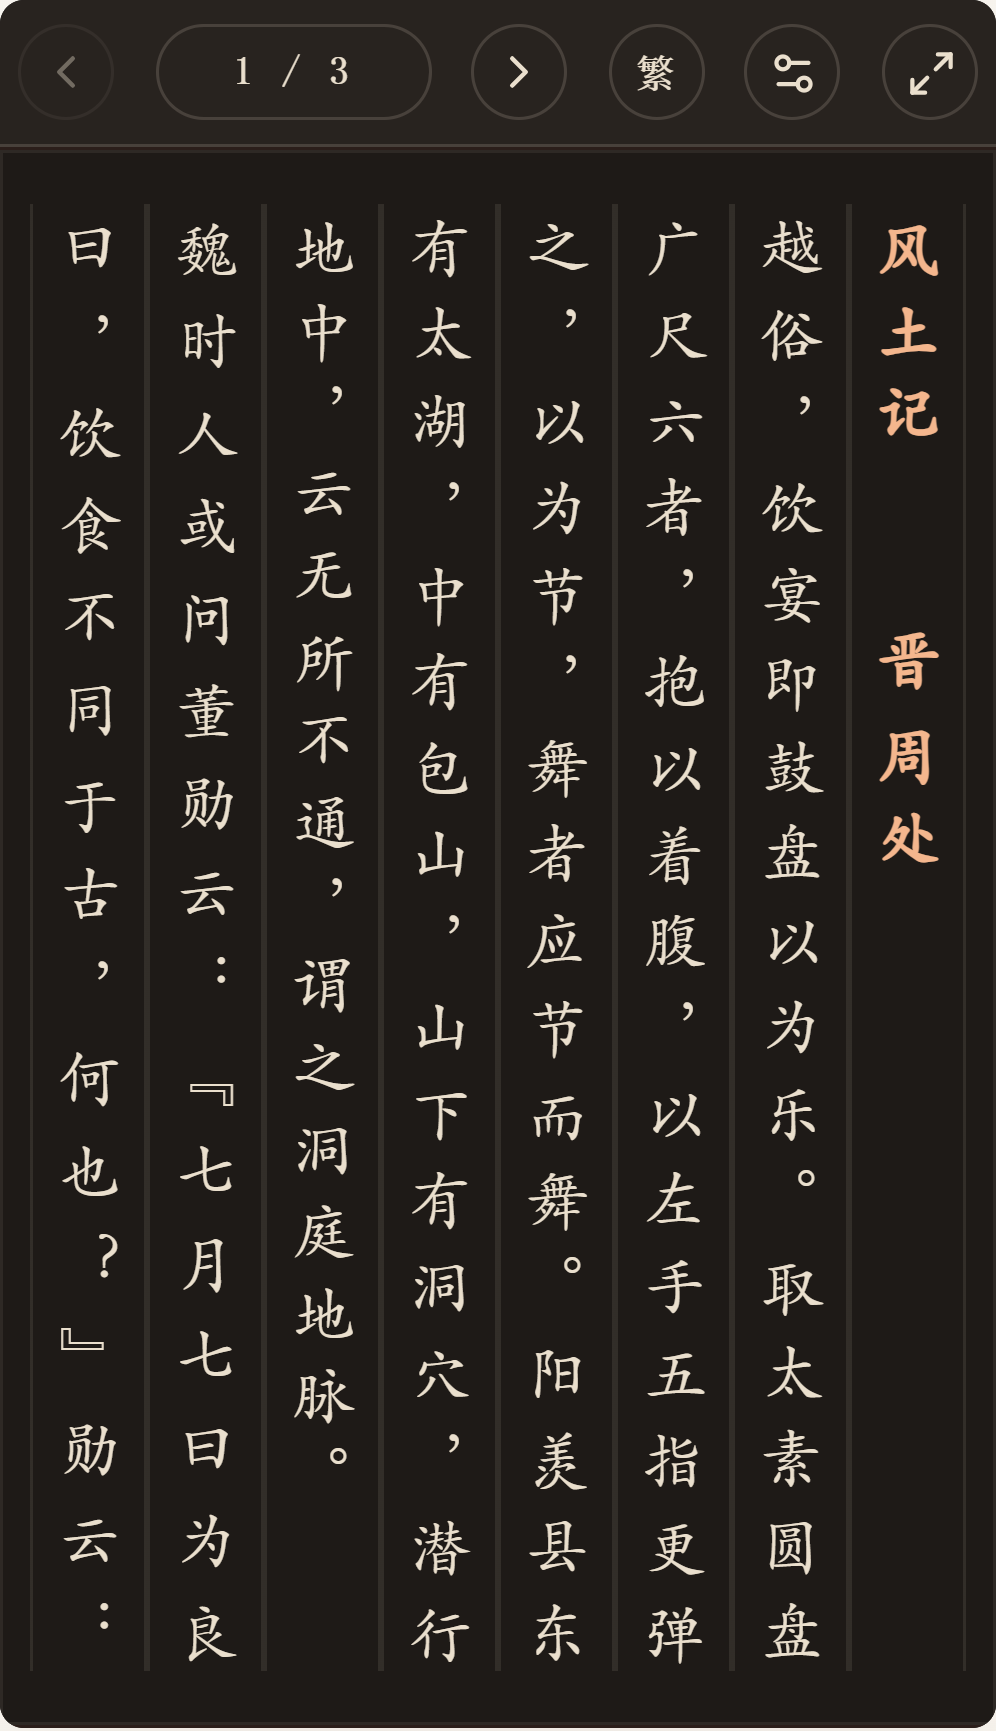 1 / 3
繁
风土记 晋 周处
越俗，饮宴即鼓盘以为乐。取太素圆盘
广尺六者，抱以着腹，以左手五指更弹
之，以为节，舞者应节而舞。阳羡县东
有太湖，中有包山，山下有洞穴，潜行
地中，云无所不通，谓之洞庭地脉。
魏时人或问董勋云：『七月七日为良
日，饮食不同于古，何也？』勋云：